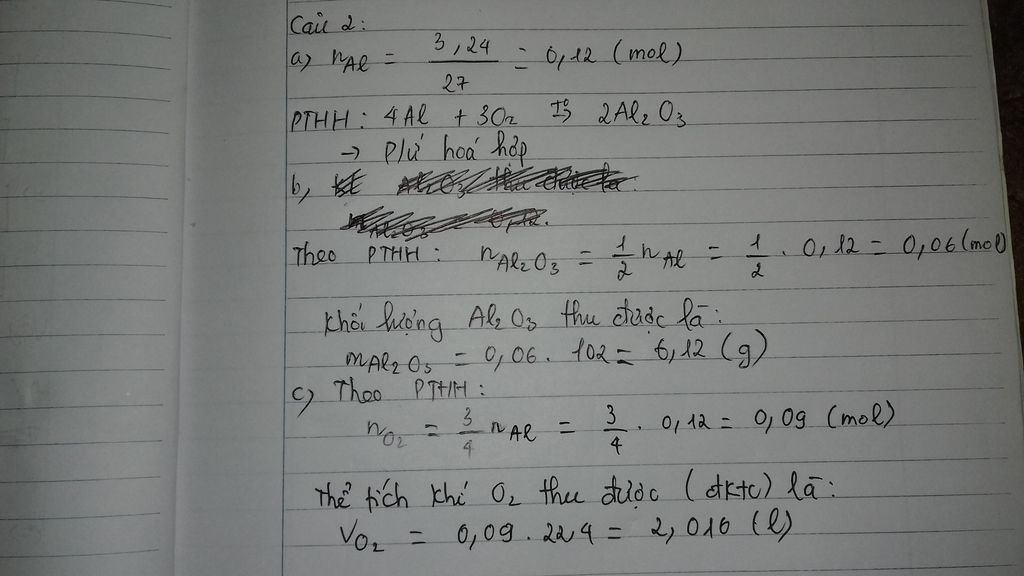 Câu 2:
a) nAl = 3,24 / 27 = 0,12 (mol)
PTHH: 4Al + 3O₂ t° → 2Al₂O₃
→ P/ứ hoá hợp
b,
Theo PTHH: nAl₂O₃ = 1/2 nAl = 1/2 . 0,12 = 0,06 (mol)
Khối lượng Al₂O₃ thu được là:
mAl₂O₃ = 0,06 . 102 = 6,12 (g)
c) Theo PTHH:
nO₂ = 3/4 nAl = 3/4 . 0,12 = 0,09 (mol)
Thể tích khí O₂ thu được (đktc) là:
VO₂ = 0,09 . 22,4 = 2,016 (l)